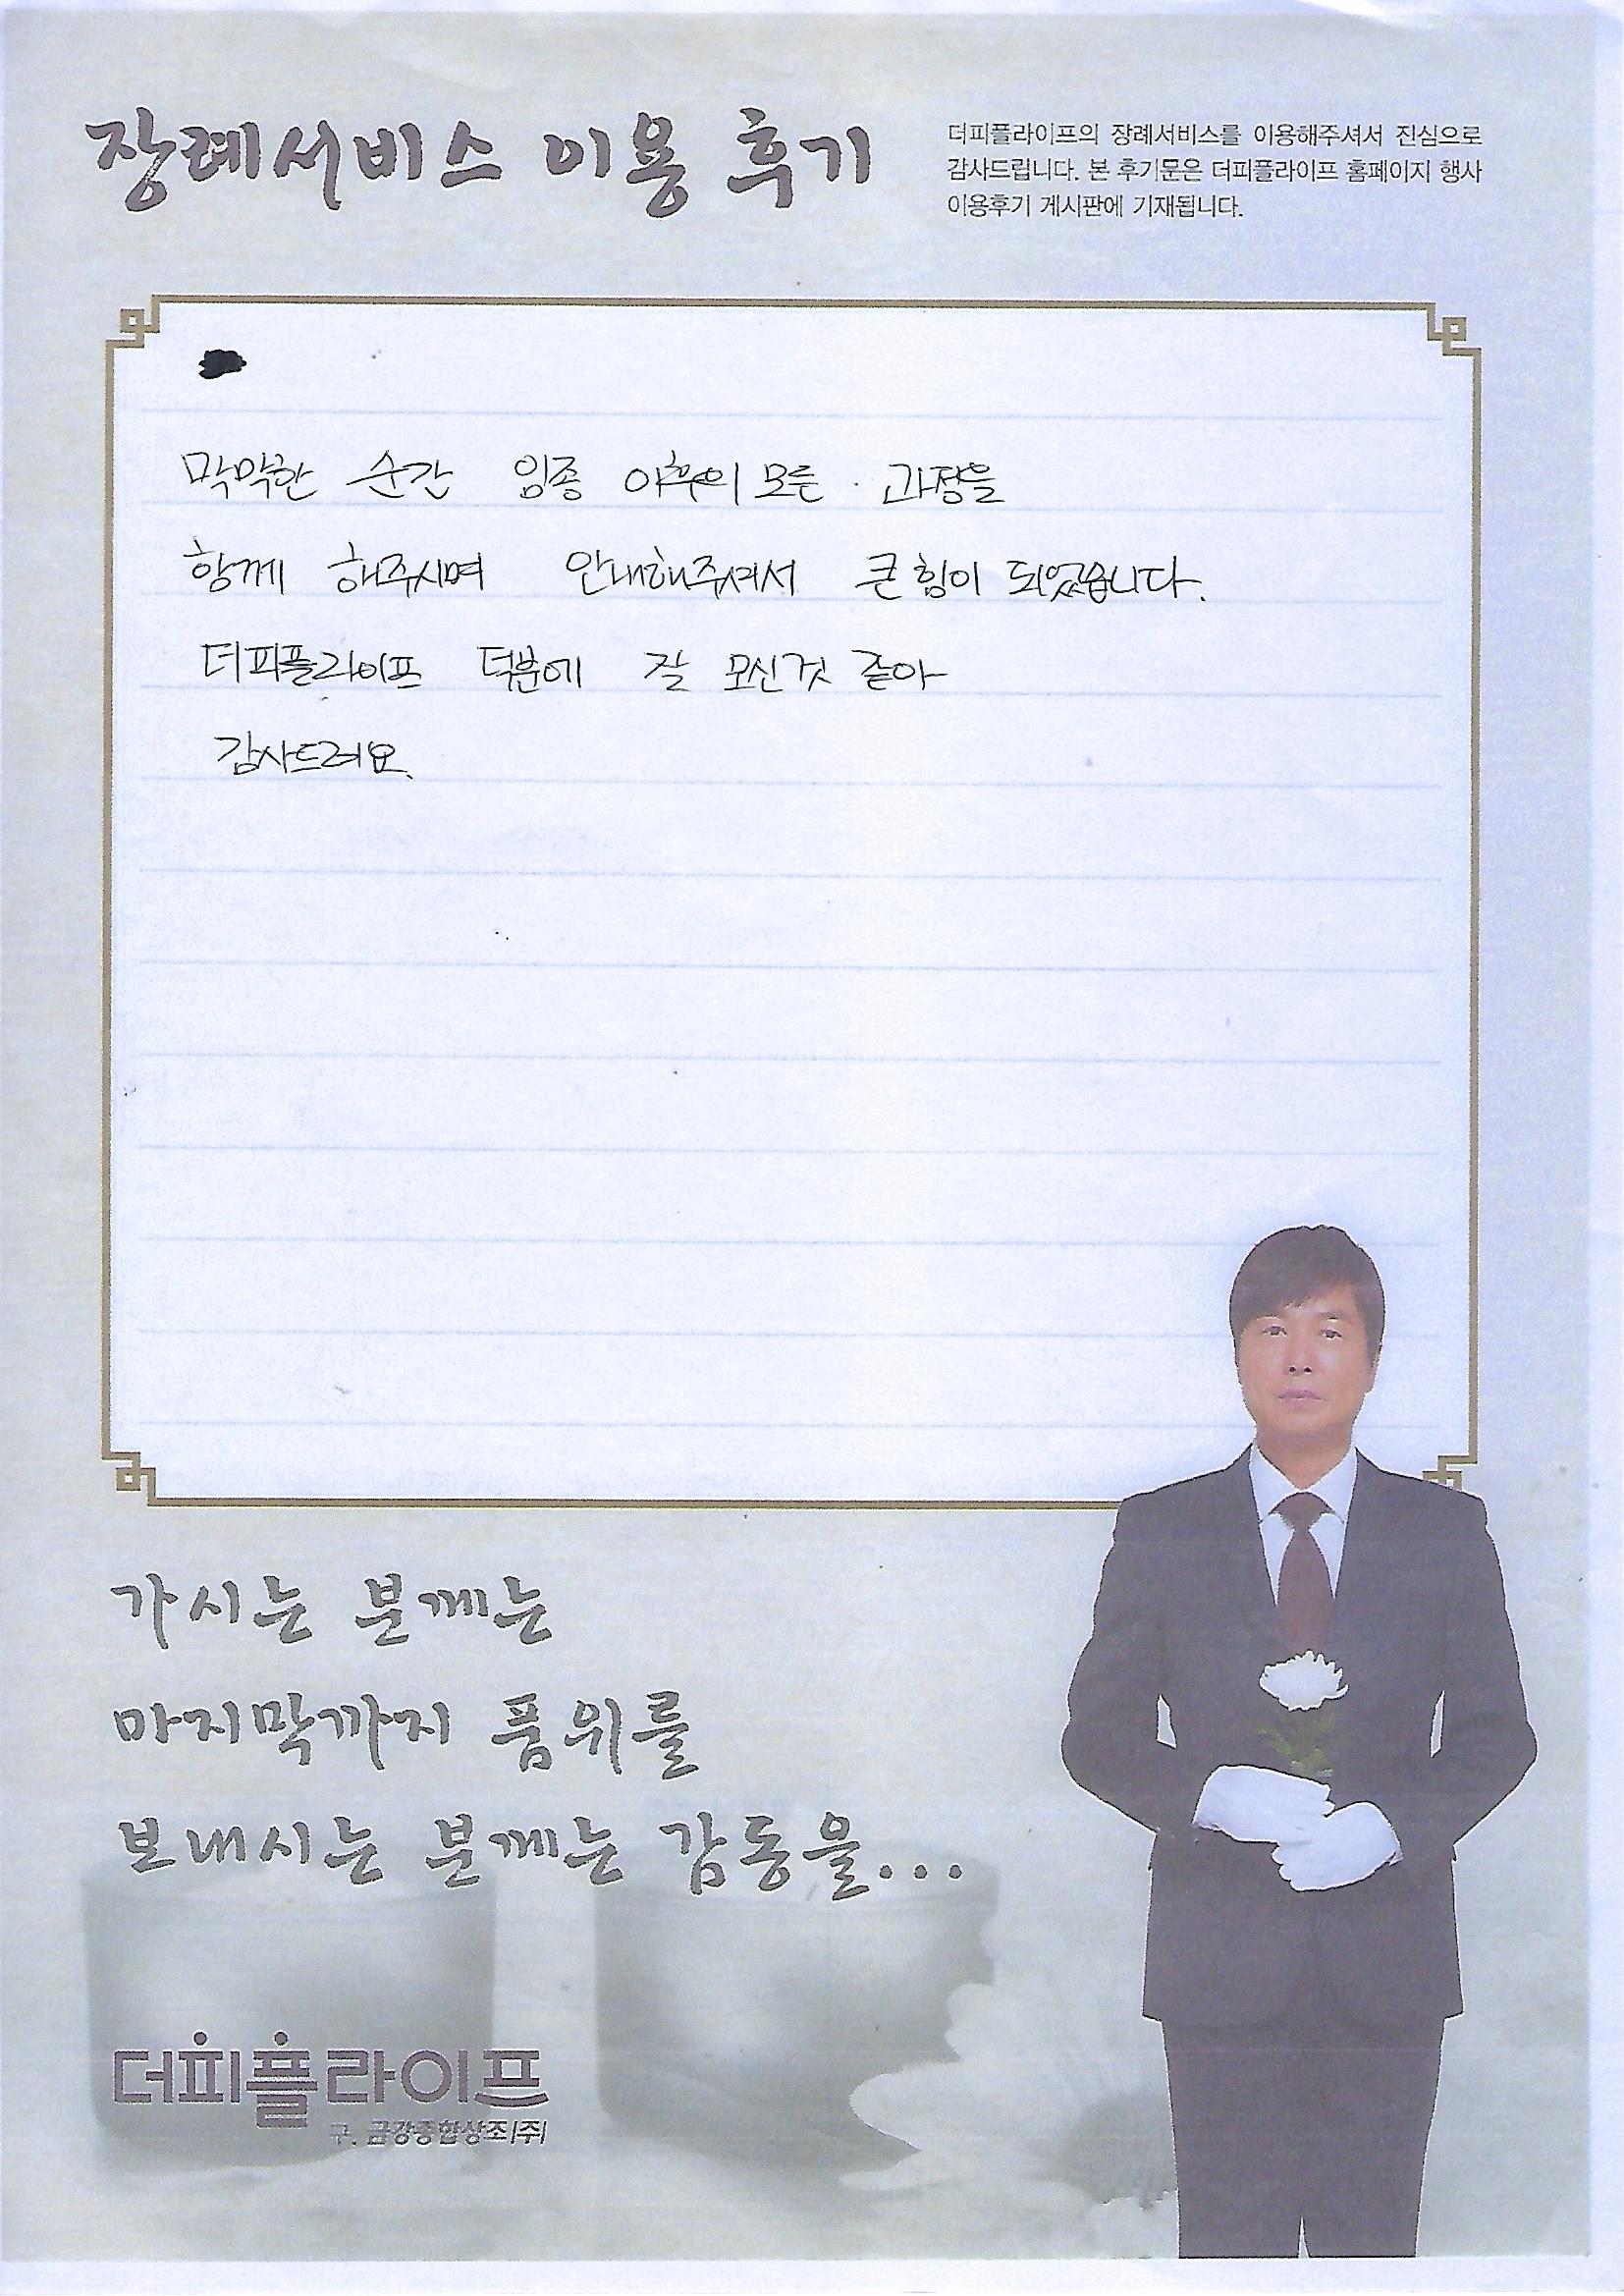 장례서비스 이용 후기
더피플라이프의 장례서비스를 이용해주셔서 진심으로
감사드립니다. 본 후기문은 더피플라이프 홈페이지 행사
이용후기 게시판에 기재됩니다.
막막한 순간 임종 이후의 모든 과정을
함께 해주시며 안내해주셔서 큰 힘이 되었습니다.
더피플라이프 덕분에 잘 모신것 같아
감사드려요.
가시는 분께는
마지막까지 품위를
보내시는 분께는 감동을...
더피플라이프
구. 금강종합상조(주)